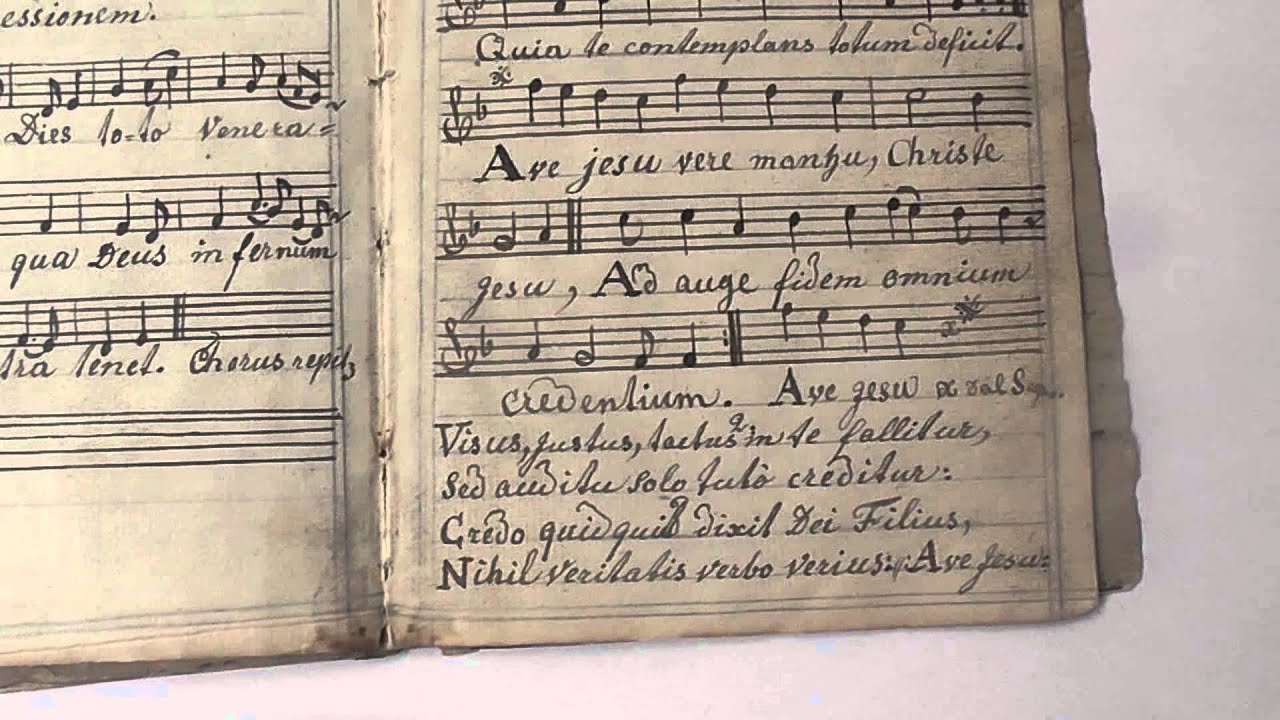 essionem.
Dies to=to venera=
qua Deus in fernum
tra tenet. Chorus repit,
Quia te contemplans totum deficit.
Ave jesu vere manhu, Christe
jesu, Ad auge fidem omnium
credentium. Ave jesu
Visus, justus, tactus in te fallitur,
Sed auditu solo tuto creditur:
Credo quidquid dixit Dei Filius,
Nihil veritatis verbo verius: Ave Jesu: